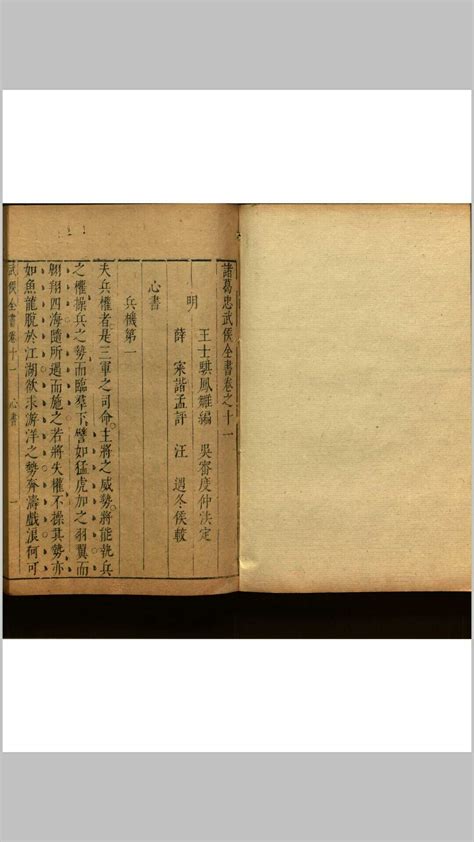 諸葛忠武侯全書卷之十一
明 王士騏鳳雛編 吳審度仲決定
薛寀諧孟評 汪遇冬侯較
心書
兵機第一
夫兵權者是三軍之司命主將之威勢將能執兵
之權操兵之勢而臨羣下譬如猛虎加之羽翼而
翺翔四海隨所遇而施之若將失權不操其勢亦
如魚龍脫於江湖欲求游洋之勢奔濤戲浪何可
武侯全書卷十一 心書 一